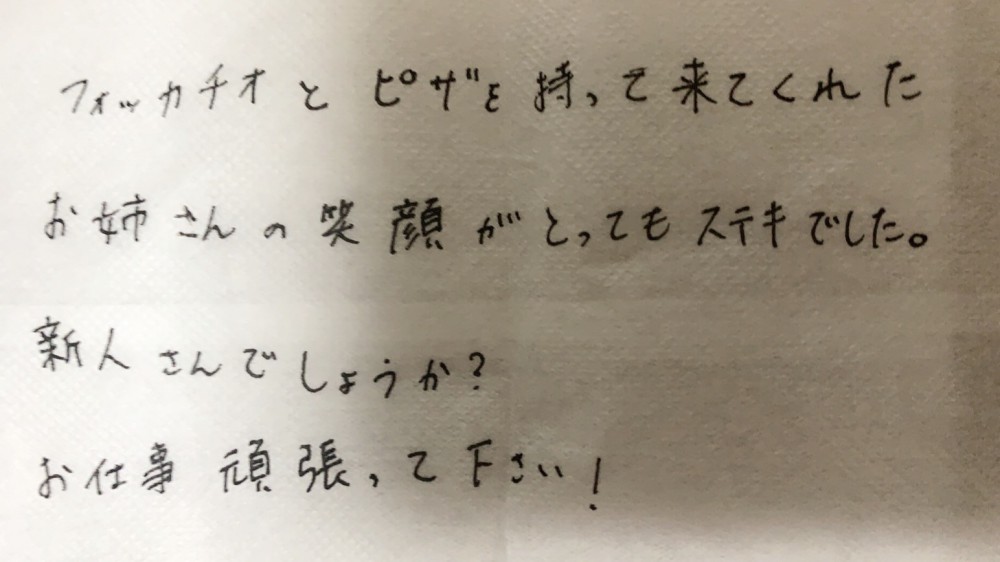 フォッカチオとピザを持って来てくれた
お姉さんの笑顔がとってもステキでした。
新人さんでしょうか?
お仕事頑張って下さい!